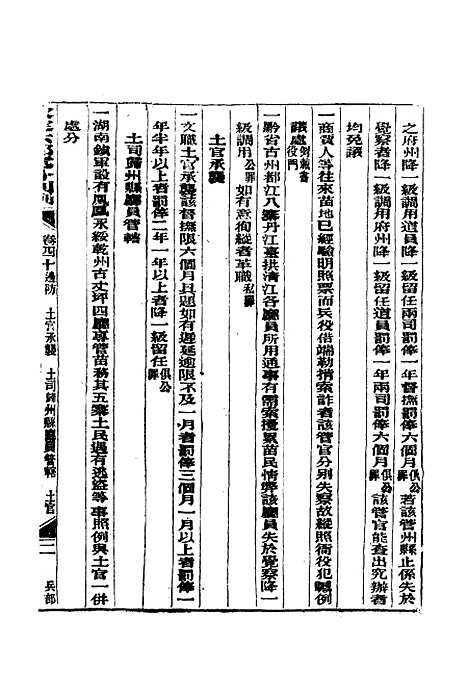 之府州降一級調用道員降一級留任兩司罰俸一年督撫罰俸六個月俱公罪若該管州縣止係失於
覺察者降一級調用府州降一級留任道員罰俸一年兩司罰俸六個月俱公罪該管官能查出究辦者
均免議
一商賈人等往來苗地已經驗明照票而兵役借端勒掯索詐者該管官分別失察故縱照衙役犯贓例
議處例載書役門
一黔省古州都江八寨丹江臺拱清江各廳員所用通事有需索擾累苗民情弊該廳員失於覺察降一
級調用公罪如有意徇縱者革職私罪
土官承襲
一文職土官承襲該督撫限六個月具題如有遲延逾限不及一月者罰俸三個月一月以上者罰俸一
年半年以上者罰俸二年一年以上者降一級留任俱公罪
土司歸州縣廳員管轄
一湖南鎮軍設有鳳凰永綏乾州古丈坪四廳專管苗務其五寨土民遇有逃盜等事照例與土官一併
處分
卷四十邊防 土官承襲 土司歸州縣廳員管轄 土官 兵部